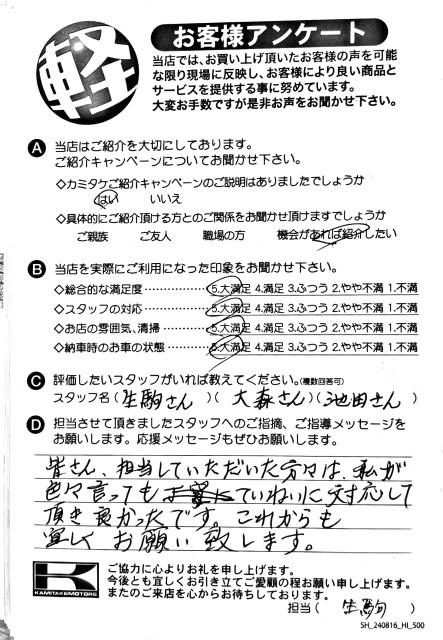 軽
お客様アンケート
当店では、お買い上げ頂いたお客様の声を可能
な限り現場に反映し、お客様により良い商品と
サービスを提供する事に努めています。
大変お手数ですが是非お声をお聞かせ下さい。
A 当店はご紹介を大切にしております。
ご紹介キャンペーンについてお聞かせ下さい。
◇カミタケご紹介キャンペーンのご説明はありましたでしょうか
はい いいえ
◇具体的にご紹介頂ける方とのご関係をお聞かせ頂けますでしょうか
ご親族 ご友人 職場の方 機会があれば紹介したい
B 当店を実際にご利用になった印象をお聞かせ下さい。
◇総合的な満足度……………5.大満足 4.満足 3.ふつう 2.やや不満 1.不満
◇スタッフの対応……………5.大満足 4.満足 3.ふつう 2.やや不満 1.不満
◇お店の雰囲気、清掃…………5.大満足 4.満足 3.ふつう 2.やや不満 1.不満
◇納車時のお車の状態…………5.大満足 4.満足 3.ふつう 2.やや不満 1.不満
C 評価したいスタッフがいれば教えてください。(複数回答可)
スタッフ名(生駒さん)(大森さん)(池田さん)
D 担当させて頂きましたスタッフへのご指摘、ご指導メッセージを
お願いします。応援メッセージもぜひお願いします。
皆さん、担当していただいた方々は、私が
色々言っても ていねいに対応して
頂き良かったです。これからも
宜しくお願い致します。
KAMITAKEMOTORS
ご協力に心よりお礼を申し上げます。
今後とも宜しくお引き立てご愛顧の程お願い申し上げます。
またのご来店を心からお待ちしております。
担当(生駒)
SH_240816_HI_500